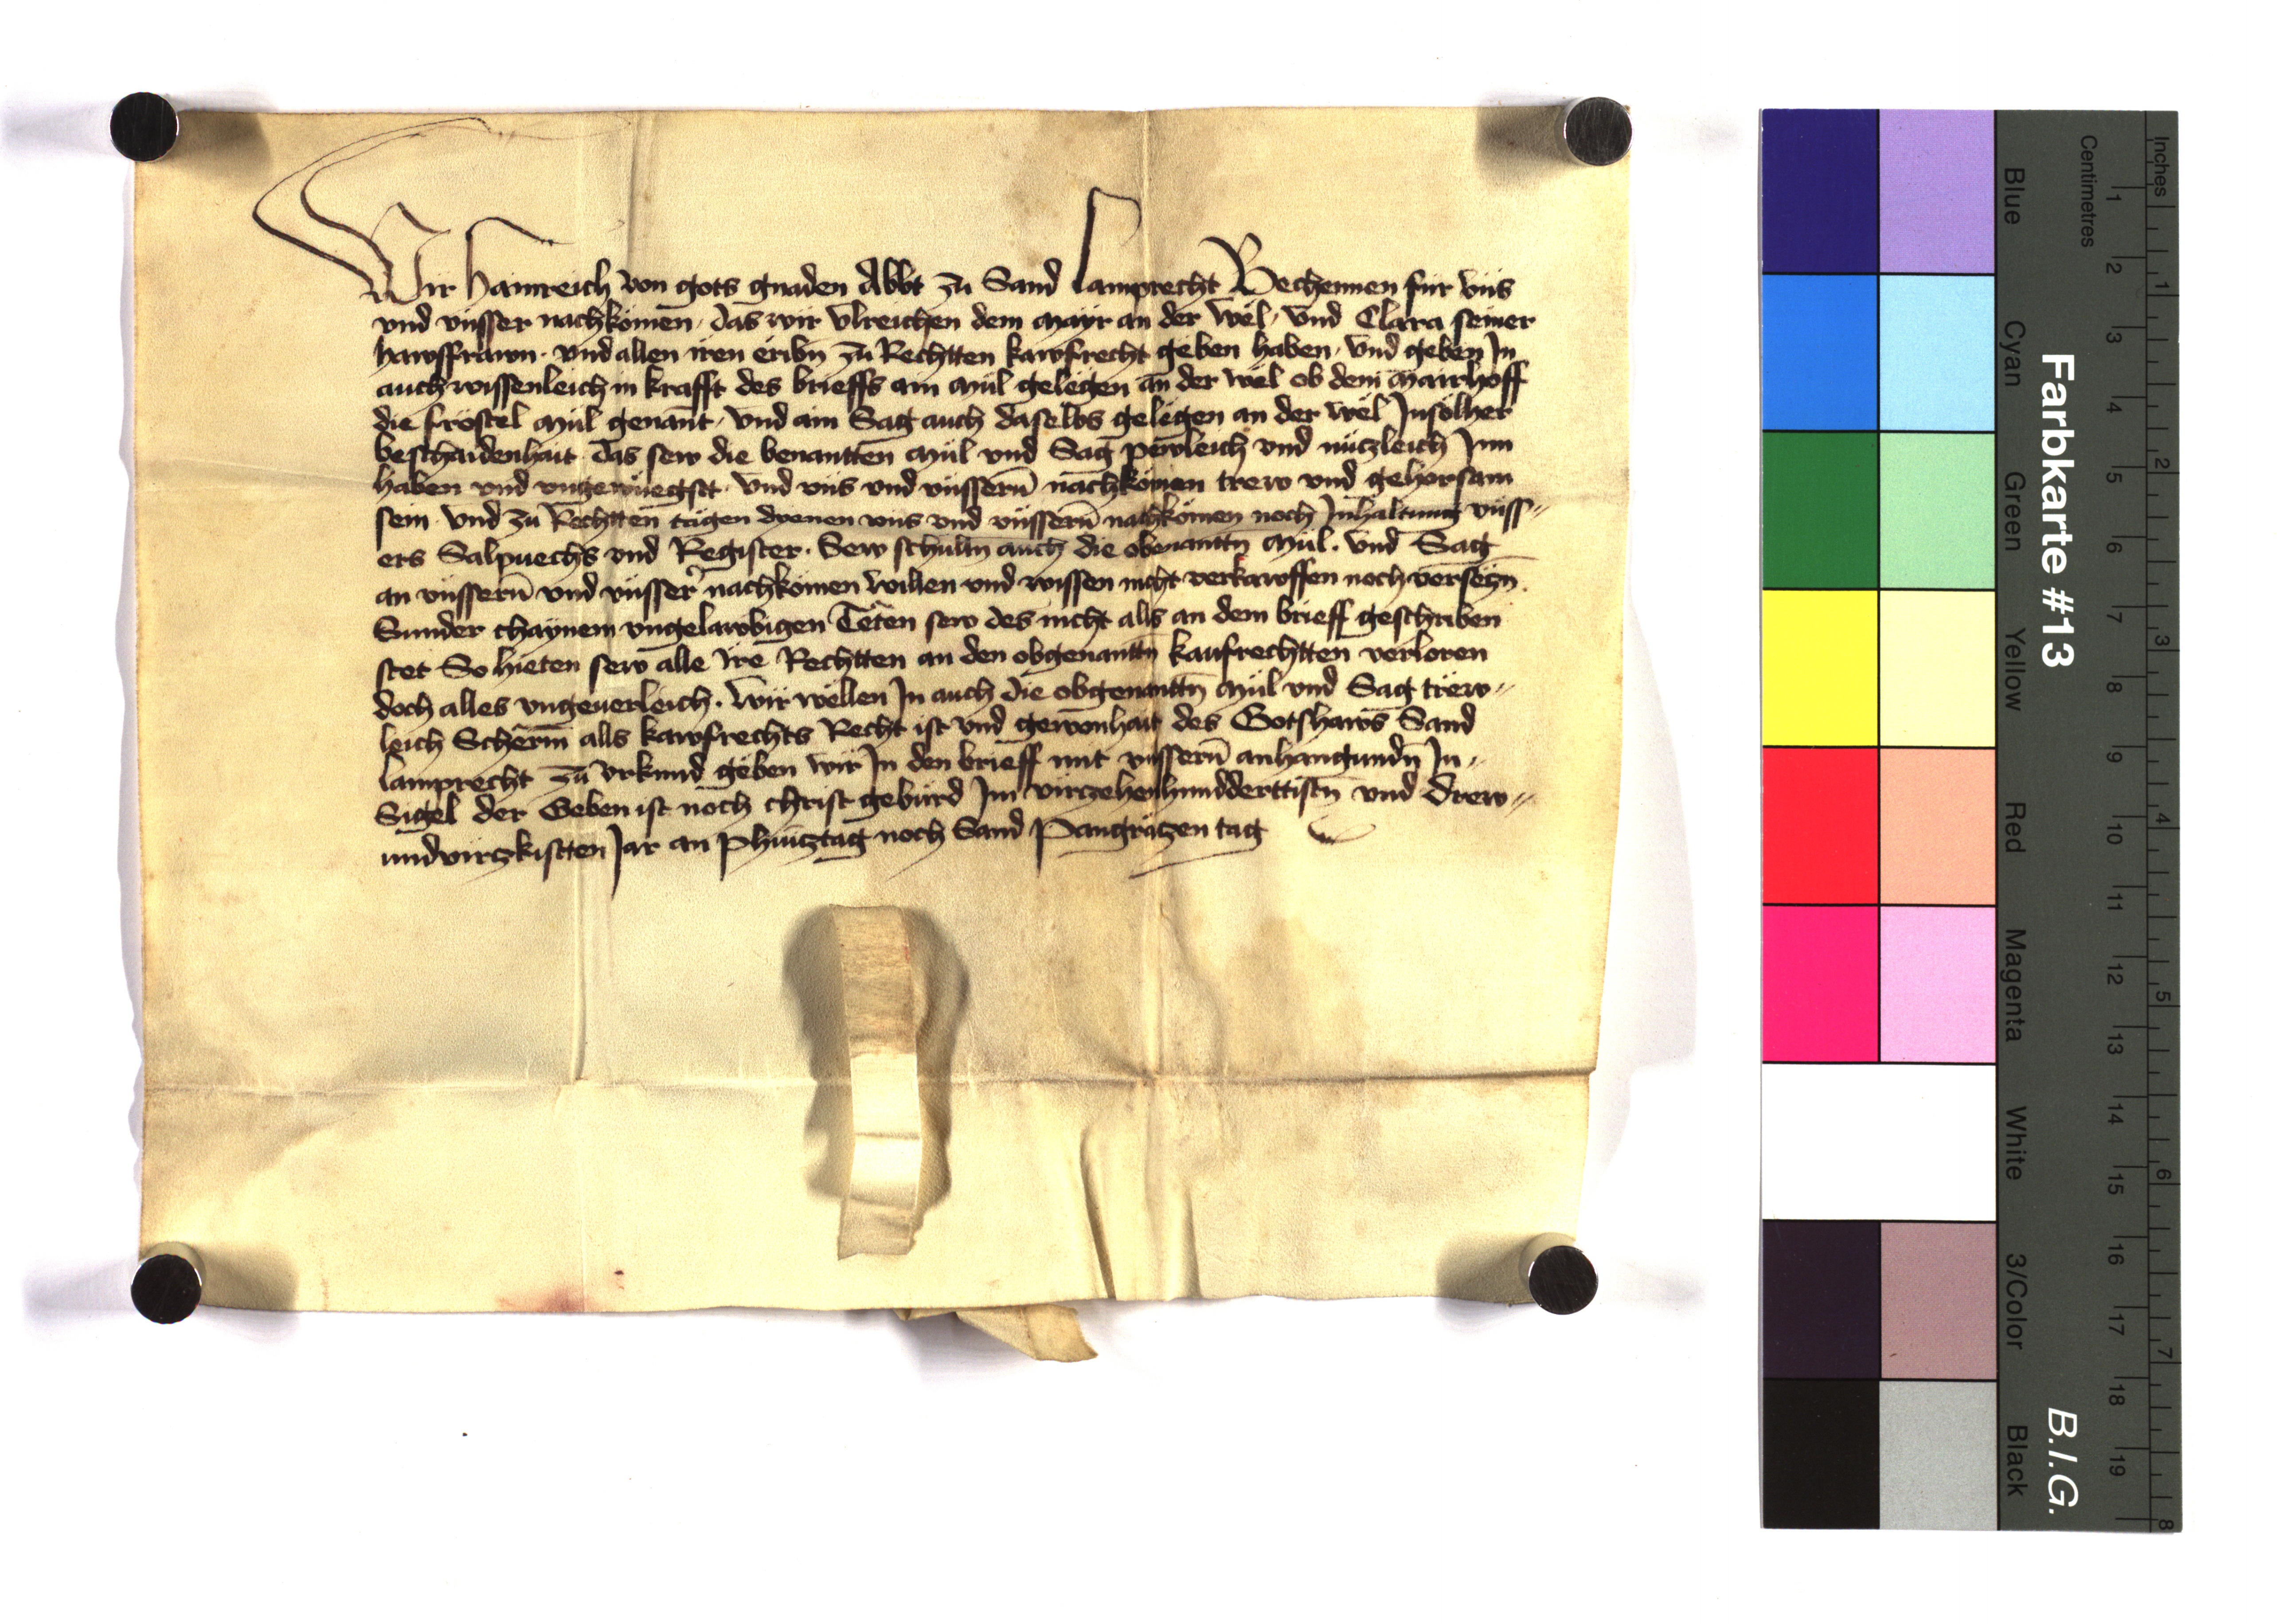 Wir Hainreich von gots gnaden Abbt zu Sand Lamprecht Bechennen für vns
vnd vnsser nachkömen, das wir Vlreichen dem Mayr an der Wel, vnd Clara seiner
hawsfrawn. vnd allen iren eribn zu Rechtten kawfrecht geben haben, vnd geben In
auch wissenleich in krafft des brieffs ain Mül gelegen an der Wel ob dem Mairhoff
die fröstel Mül genant, vnd ain Sag auch daselbs gelegen an der Wel Insölher
beschaidenhait. das sew die benantten Mül vnd Sag pewleich vnd nützleich Inn
haben vnd vnd vns vnd vnssern nachkömen trew vnd gehorsam
sein. vnd zu Rechtten tägen dyenen vns vnd vnssern nachkömen noch Inhaltung vnss〃
ers Salpuechs vnd Register. Sew schulln auch die obenanttn Mül. vnd Sag
an vnssern vnd vnsser nachkömen willen vnd wissen nicht verkawffen noch verseczn.
Sunder chaynem vngelawbigen Teten sew des nicht alls an dem brieff geschriben
stet So hieten sew alle Ire Rechtten an den obgenanttn kaufrechtten verloren
doch alles vngeuerleich. Wir wellen In auch die obgenanttn Mül vnd Sag trew〃
leich Scherm alls kawfrechts Recht ist vnd gewonhait des Gotshaws Sand
lamprecht zu vrkund geben wir In den brieff mit vnssern anhangundn In〃
Sigel der Geben ist noch christ gebürd Im virczehenhundderttistn vnd drew〃
undvirczkistten Jar an Phincztag noch Sand Pangräczen tag
Inches
Centimetres
1 2 3 4 5 6 7 8 9 10 11 12 13 14 15 16 17 18 19
1 2 3 4 5 6 7 8
Blue Cyan Green Yellow Red Magenta White 3/Color Black
Farbkarte #13 B.I.G.